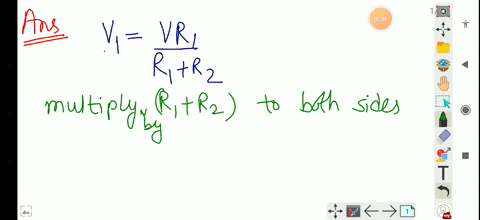 Ans
V₁ = VR₁ / R₁+R₂
multiply by (R₁+R₂) to both sides